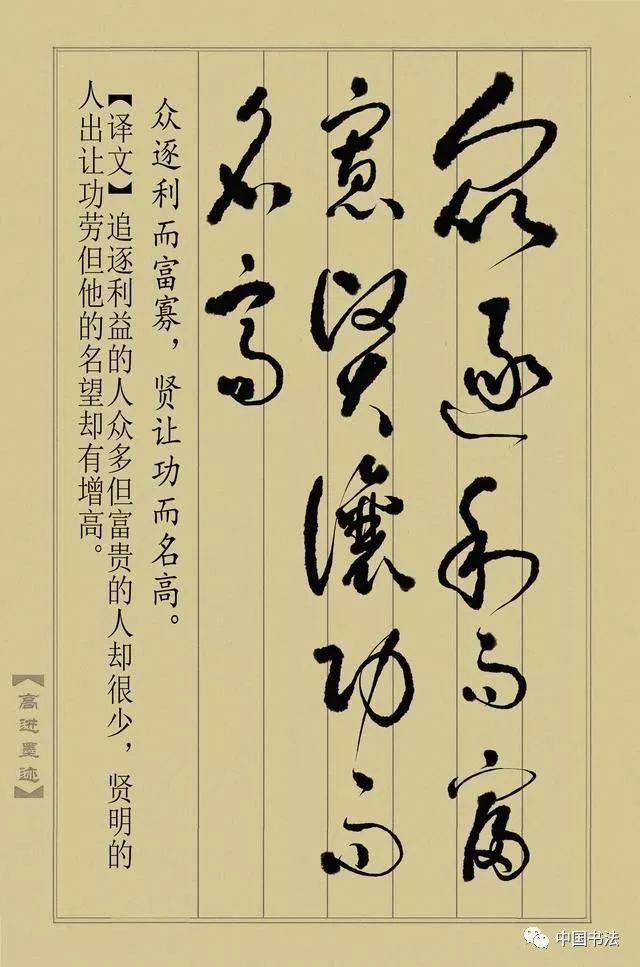 眾逐利而富
寡賢讓功而
名高
众逐利而富寡，贤让功而名高。
【译文】追逐利益的人众多但富贵的人却很少，贤明的
人出让功劳但他的名望却有增高。
【高进墨迹】
中国书法